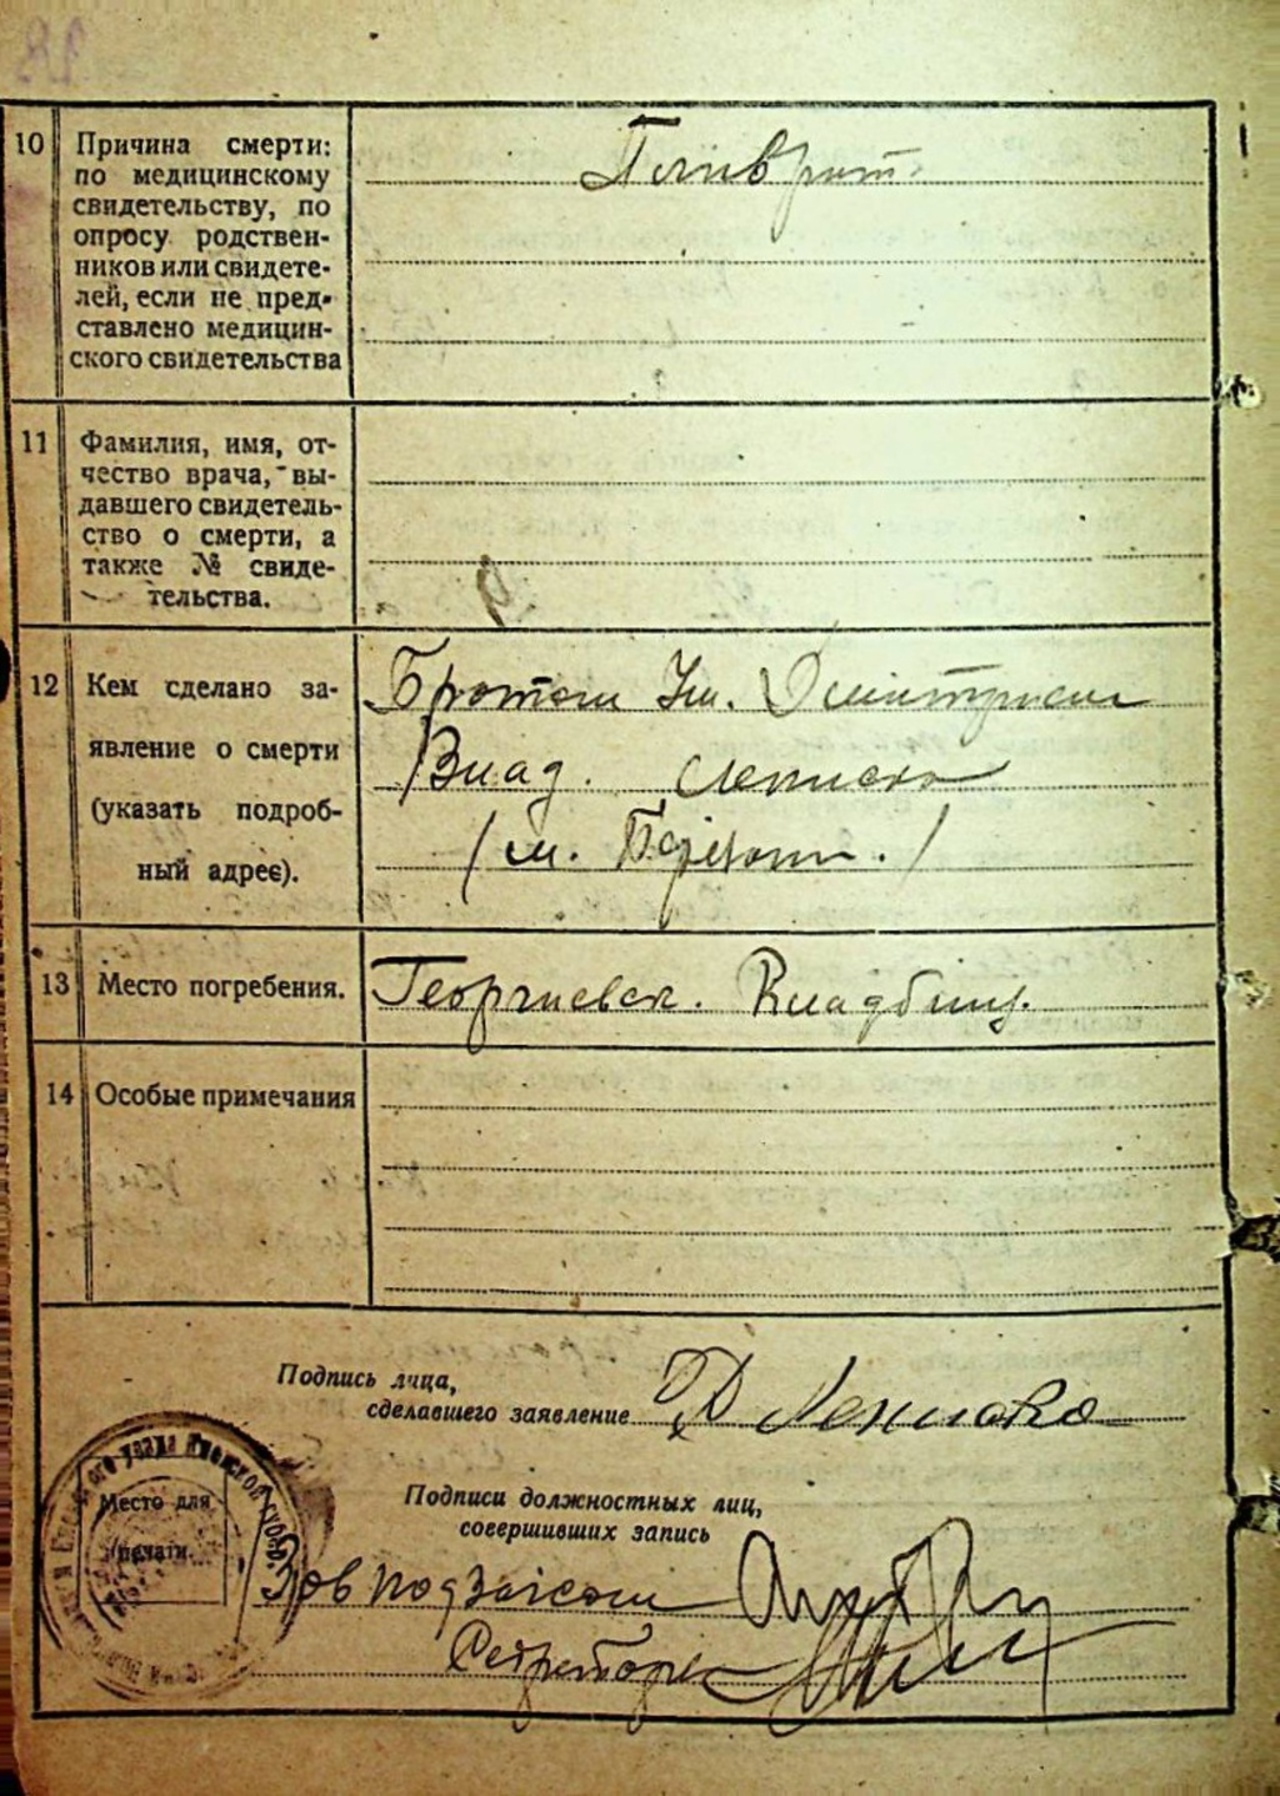 10 Причина смерти:
по медицинскому
свидетельству, по
опросу родствен-
ников или свидете-
лей, если не пред-
ставлено медицин-
ского свидетельства
Плеврит.
11 Фамилия, имя, от-
чество врача, вы-
давшего свидетель-
ство о смерти, а
также № свиде-
тельства.
12 Кем сделано за-
явление о смерти
(указать подроб-
ный адрес).
Братом Им. Дмитрием
Влад.
13 Место погребения.
Георгиевск. Кладбищ.
14 Особые примечания
Подпись лица,
сделавшего заявление
Подписи должностных лиц,
совершивших запись
Место для
печати
Зав подзагсом
Секретарь